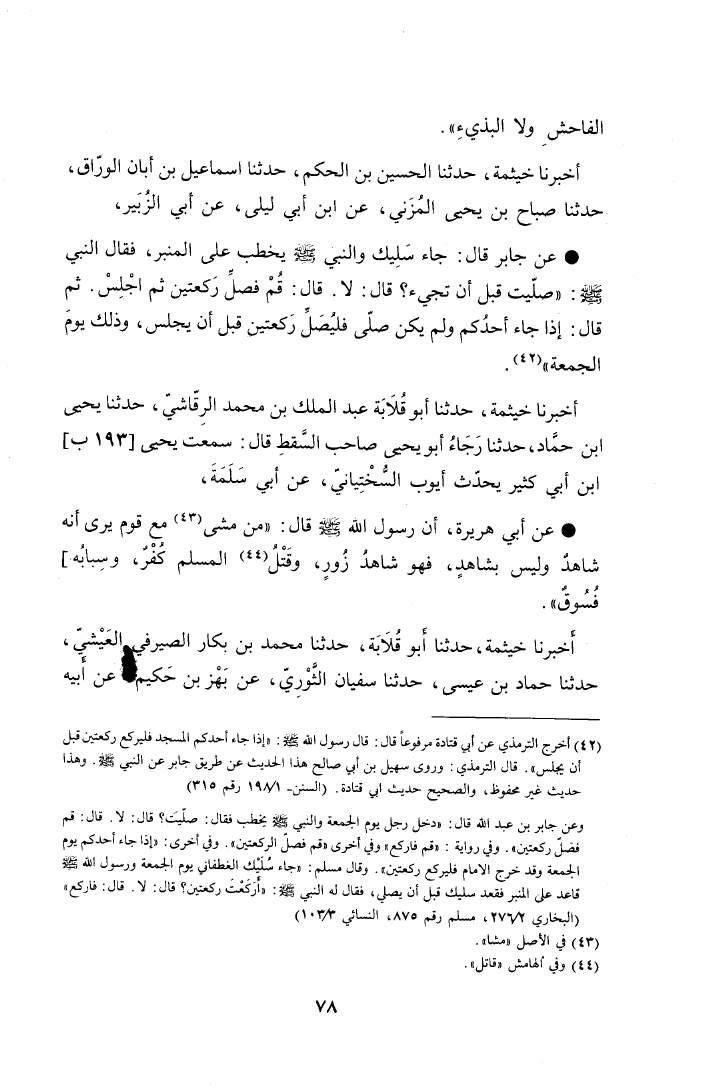 الفاحشِ ولا البذيءِ».
أخبرنا خيثمة، حدثنا الحسين بن الحكم، حدثنا اسماعيل بن أبان الورّاق،
حدثنا صباح بن يحيى المُزَني، عن ابن أبي ليلى، عن أبي الزُبَير،
● عن جابر قال: جاء سَلِيك والنبي ﷺ يخطب على المنبر، فقال النبي
ﷺ: «صلّيت قبل أن تجيء؟ قال: لا. قال: قُمْ فصلِّ رَكعتين ثم اجْلِسْ. ثم
قال: إذا جاء أحدُكم ولم يكن صلّى فليُصَلِّ رَكعتين قبل أن يجلس، وذلك يومَ
الجمعة»(٤٢).
أخبرنا خيثمة، حدثنا أبو قُلَابَة عبد الملك بن محمد الرقّاشيّ، حدثنا يحيى
ابن حمَّاد، حدثنا رَجَاءُ أبو يحيى صاحب السَّقطِ قال: سمعت يحيى [١٩٣ ب]
ابن أبي كثير يحدّث أيوب السُّخْتِيانيّ، عن أبي سَلَمَةَ،
● عن أبي هريرة، أن رسول الله ﷺ قال: «من مشى(٤٣) مع قوم يرى أنه
شاهدٌ وليس بشاهدٍ، فهو شاهدُ زُورٍ، وقَتْلُ(٤٤) المسلم كُفْرٌ، وسِبابُه]
فُسُوقٌ».
أَخبرنا خيثمة، حدثنا أَبو قُلَابَة، حدثنا محمد بن بكار الصيرفي العَيْشيّ،
حدثنا حماد بن عيسى، حدثنا سفيان الثَّوْريّ، عن بَهْز بن حَكيم عن أَبيه
(٤٢) أخرج الترمذي عن أبي قتادة مرفوعاً قال: قال رسول الله ﷺ: «إذا جاء أحدكم المسجد فليركع ركعتين قبل
أن يجلس». قال الترمذي: وروى سهيل بن أبي صالح هذا الحديث عن طريق جابر عن النبي ﷺ. وهذا
حديث غير محفوظ، والصحيح حديث ابي قتادة. (السنن- ١٩٨/١ رقم ٣١٥)
وعن جابر بن عبد الله قال: «دخل رجل يوم الجمعة والنبي ﷺ يخطب فقال: صلّيَت؟ قال: لا. قال: قم
فصَلّ ركعتين». وفي رواية: «قم فاركع» وفي أخرى «قم فصلّ الركعتين». وفي أخرى: «إذا جاء أحدكم يوم
الجمعة وقد خرج الامام فليركع ركعتين». وقال مسلم: «جاء سُلَيْك الغطفاني يوم الجمعة ورسول الله ﷺ
قاعد على المنبر فقعد سليك قبل أن يصلي، فقال له النبي ﷺ: «أركَعْتَ ركعتين؟ قال: لا. قال: فاركع»
(البخاري ٢٧٦/٢، مسلم رقم ٨٧٥، النسائي ١٠٣/٣)
(٤٣) في الأصل «مشا».
(٤٤) وفي الهامش «قاتل».
٧٨